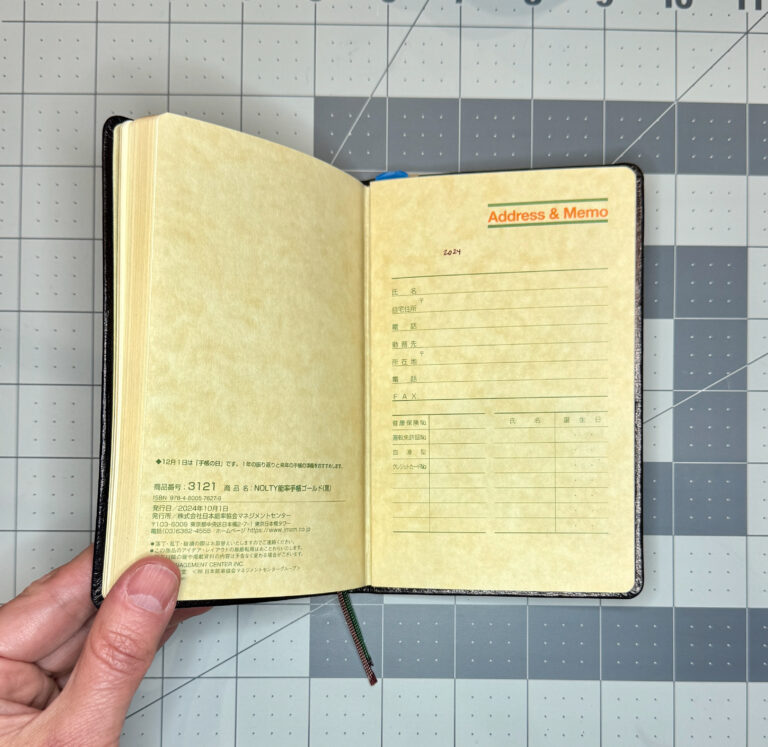 10
11
◆12月1日は「手帳の日」です。1年の振り返りと来年の手帳の準備をおすすめします。
商品番号：3121 商品名：NOLTY能率手帳ゴールド(黒)
ISBN 978-4-8005-7627-9
発行日／2024年10月1日
発行所／株式会社日本能率協会マネジメントセンター
〒103-6009 東京都中央区日本橋2-7-1 東京日本橋タワー
電話(03)6362-4558 ホームページ https://www.jmam.co.jp
●落丁・乱丁・破損の際はお取替えいたしますのでご連絡ください。
●この商品のアイデア・レイアウトの無断転用はおことわりいたします。
の内容は予告なく変わる場合がございます。
MANAGEMENT CENTER INC.
日本能率協会マネジメントセンターグループ＞
Address & Memo
2024
氏 名
自宅住所 〒
電 話
勤務先
所在地 〒
電 話
FAX
健康保険No.
運転免許証No.
血液型
クレジットカードNo.
氏 名 誕生日